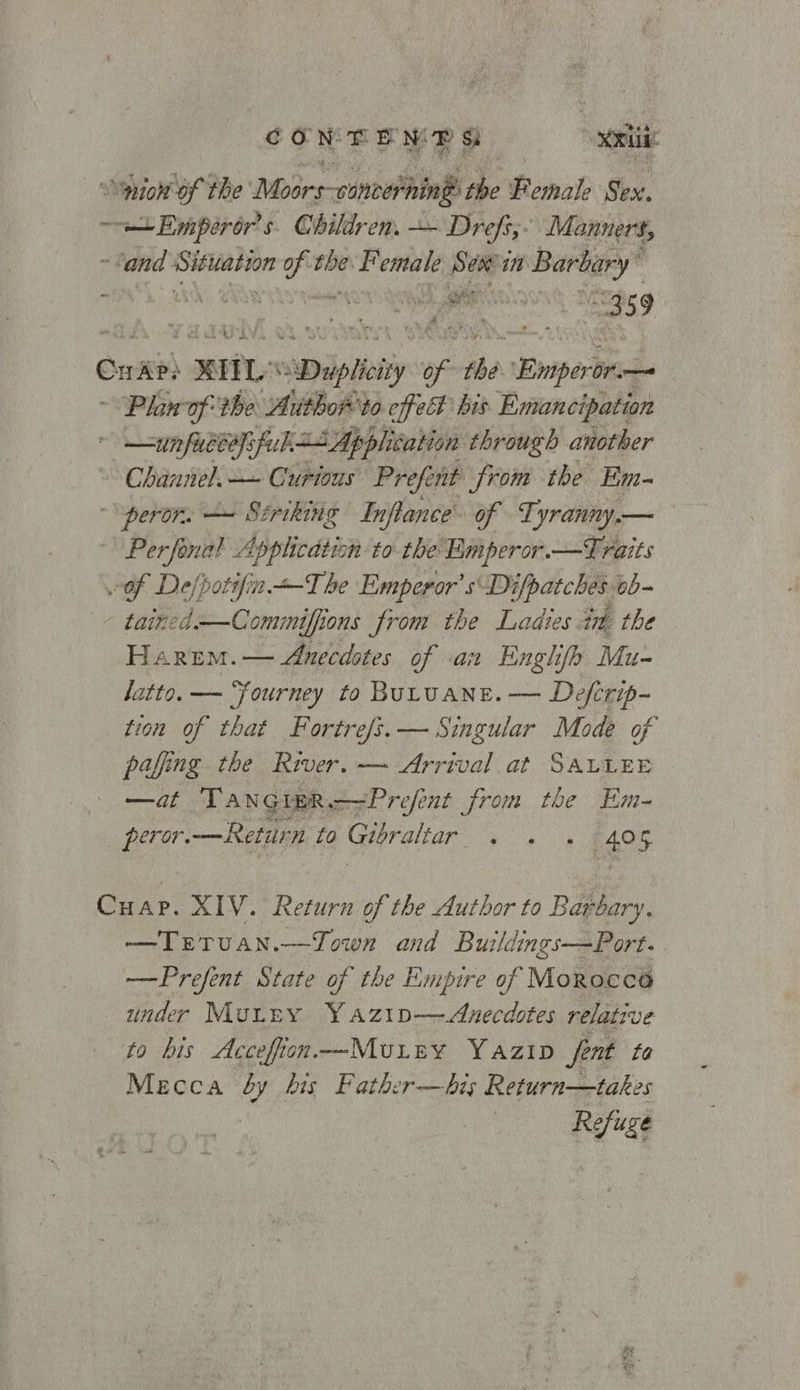 CONTENTS xxiii
nion of the Moors concerning the Female Sex.
—Emperor's Children.—Dreſs, Manners,
and Situation of the Female Sex in Barbary
359
CHAP. XIII. Duplicity of the Emperor.—
Plan of the Author to effect his Emancipation
—unſucceſsful.—Application through another
Channel.—Curious Preſent from the Em-
peror.—Striking Inſtance of Tyranny.—
Perſonal Application to the Emperor.—Traits
of Deſpotiſm.—The Emperor's Diſpatches ob-
tained.—Commiſſions from the Ladies in the
HAREM.—Anecdotes of an Engliſh Mu-
latto.—Journey to BULUANE.—Deſcrip-
tion of that Fortreſs.—Singular Mode of
paſſing the River.—Arrival at SALLEE
—at TANGIER.—Preſent from the Em-
peror.—Return to Gibraltar . . . 405
CHAP. XIV. Return of the Author to Barbary.
—TETUAN.—Town and Buildings—Port.
—Preſent State of the Empire of MOROCCO
under MULEY YAZID—Anecdotes relative
to his Acceſſion.—MULEY YAZID ſent to
MECCA by his Father—his Return—takes
Refuge